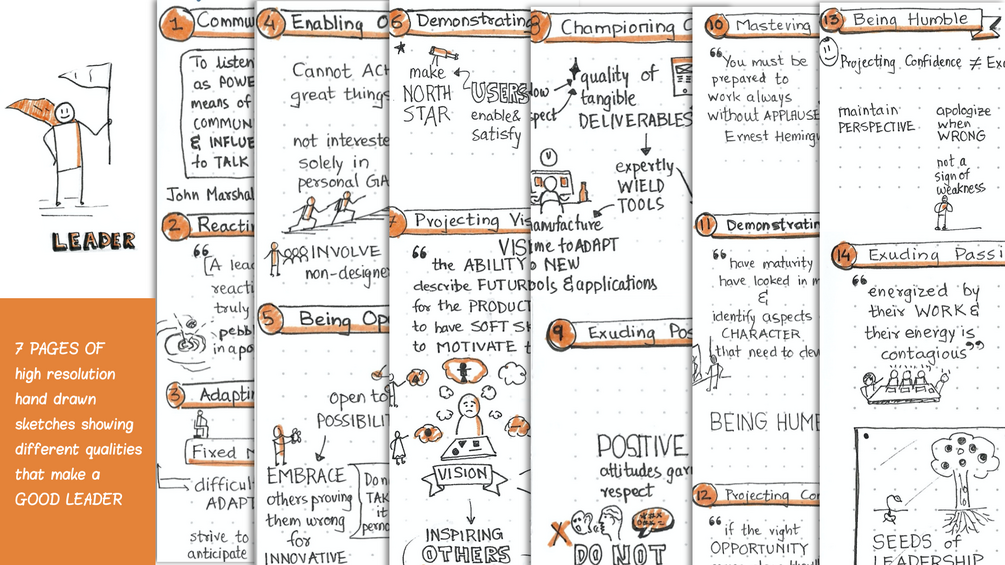 LEADER
7 PAGES OF
high resolution
hand drawn
sketches showing
different qualities
that make a
GOOD LEADER
1 Commu
To listen
as POWE
means of
COMMUN
& INFLUE
to TALK
John Marshal
2 Reacti
“
A lea
reacti
truly
pebb
in a po
3 Adaptin
Fixed M
difficul
ADAPT
strive to
anticipate
4 Enabling O
Cannot ACH
great things
not intereste
solely in
personal GA
INVOLVE
non-designe
5 Being Op
open to
POSSIBILI
EMBRACE
others proving
them wrong
for
INNOVATIVE
Do n
TAK
it
perno
6 Demonstrating
make
NORTH
STAR
USERS
enable &
satisfy
7 Projecting Vis
“ VIS
the ABILITY
describe FUTUR
for the PRODUCT
to have SOFT SK
to MOTIVATE t
VISION
INSPIRING
OTHERS
8 Championing C
quality of
tangible
DELIVERABLES
expertly
WIELD
TOOLS
spect
anufacture
me to ADAPT
o NEW
ools & applications
9 Exuding Pos
POSITIVE
attitudes gar
respect
X
DO NOT
10 Mastering
“You must be
prepared to
work always
without APPLAUSE
Ernest Hemingw
11 Demonstratin
“ have maturity
have looked in m
&
identify aspects
CHARACTER
that need to dev
BEING HUMB
12 Projecting Con
“ if the right
OPPORTUNITY
13 Being Humble
Projecting Confidence ≠ Exu
maintain
PERSPECTIVE
apologize
when
WRONG
not a
sign of
weakness
14 Exuding Passi
“energized by
their WORK &
their energy is
contagious”
SEEDS of
LEADERSHIP